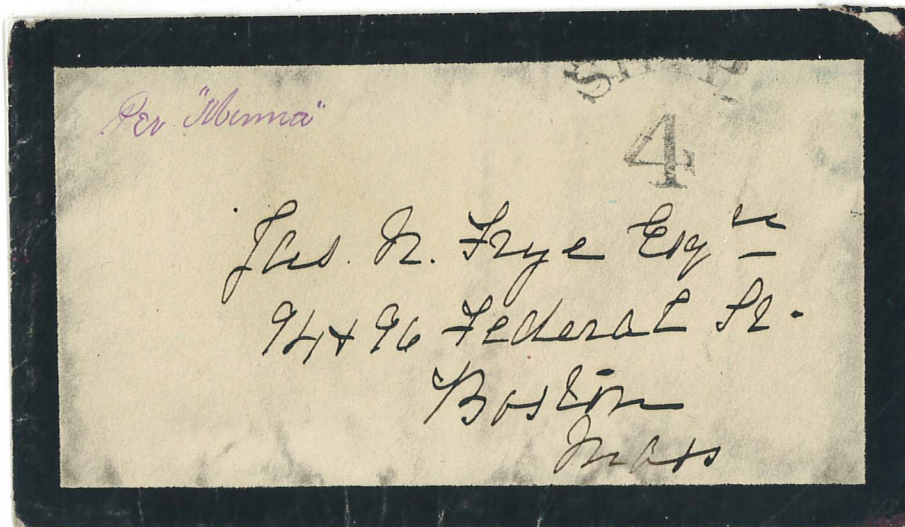 Per "Menna"
SHIP
4
Jas. N. Frye Esqre
94 & 96 Federal St.
Boston
Mass